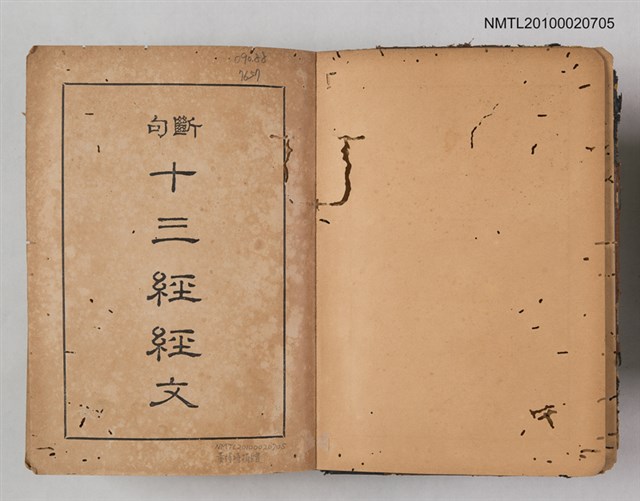 NMTL20100020705
斷句
十三經經文
NMTL20100020705